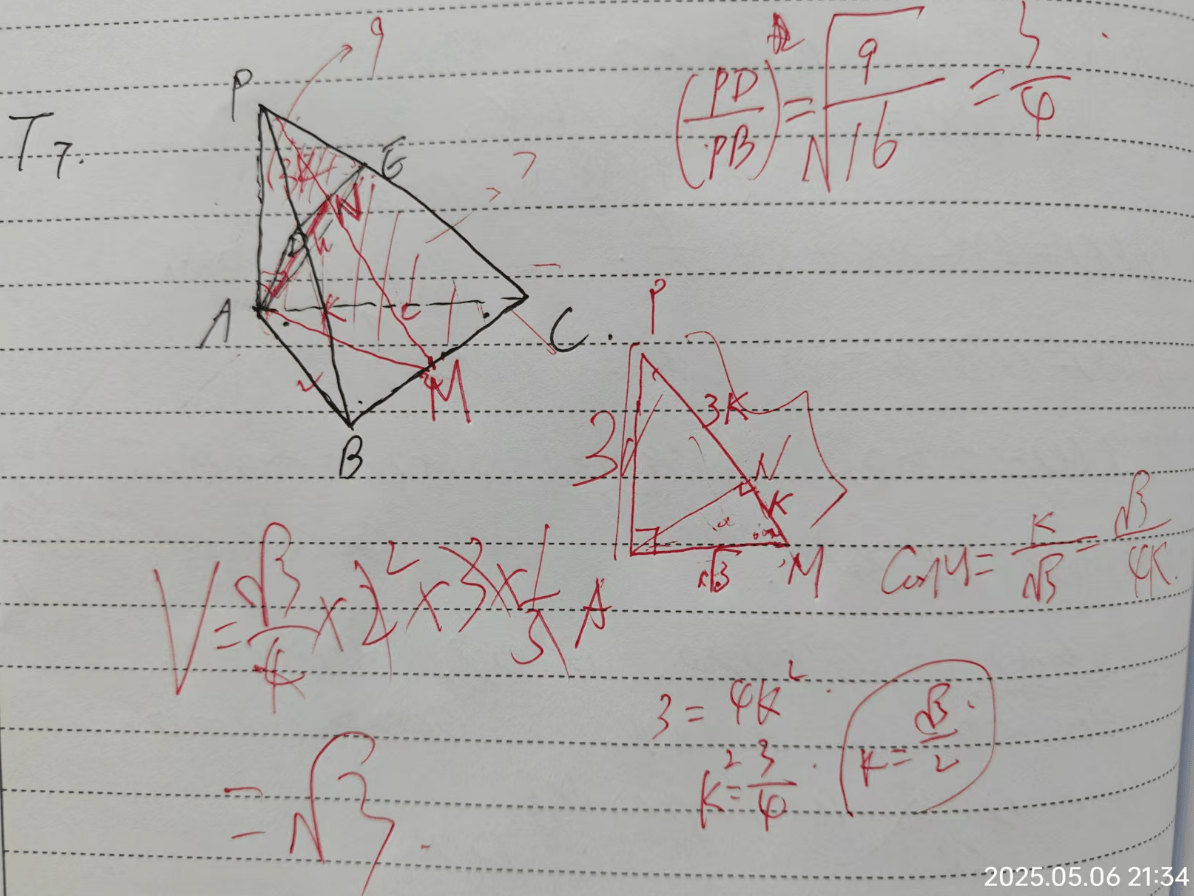 T7.
P
E
N
A
C
M
B
9
7
(PD/PB)² = √(9/16) = 3/4
P
3
3K
N
K
√3
M
A
CosM = K/√3 = √3/4K.
V = √3/4 × 2² × 3 × 1/3
= √3.
3 = 4K².
K² = 3/4.
K = √3/2.
2025.05.06 21:34